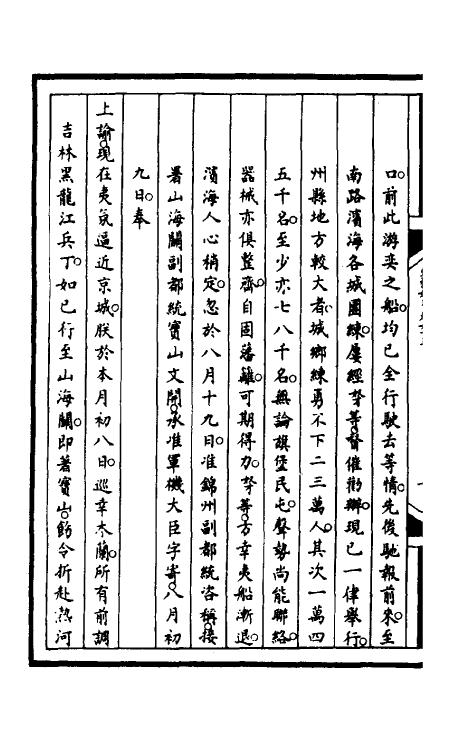 口。前此游奕之船。均已全行駛去等情。先後馳報前來。至
南路濱海各城團練。屢經弩等督催勸辦。現已一律舉行。
州縣地方較大者。城鄉練勇不下二三萬人。其次一萬四
五千名。至少亦七八千名。無論旗堡民屯。聲勢尚能聯絡。
器械亦俱整齊。自固藩籬。可期得力。弩等方幸夷船漸退。
濱海人心稍定。忽於八月十九日。准錦州副都統咨稱。接
署山海關副都統寶山文開。承准軍機大臣字寄。八月初
九日。奉
上諭。現在夷氛逼近京城。朕於本月初八日。巡幸木蘭。所有前調
吉林黑龍江兵丁。如已行至山海關。即著寶山。飭令折赴熱河